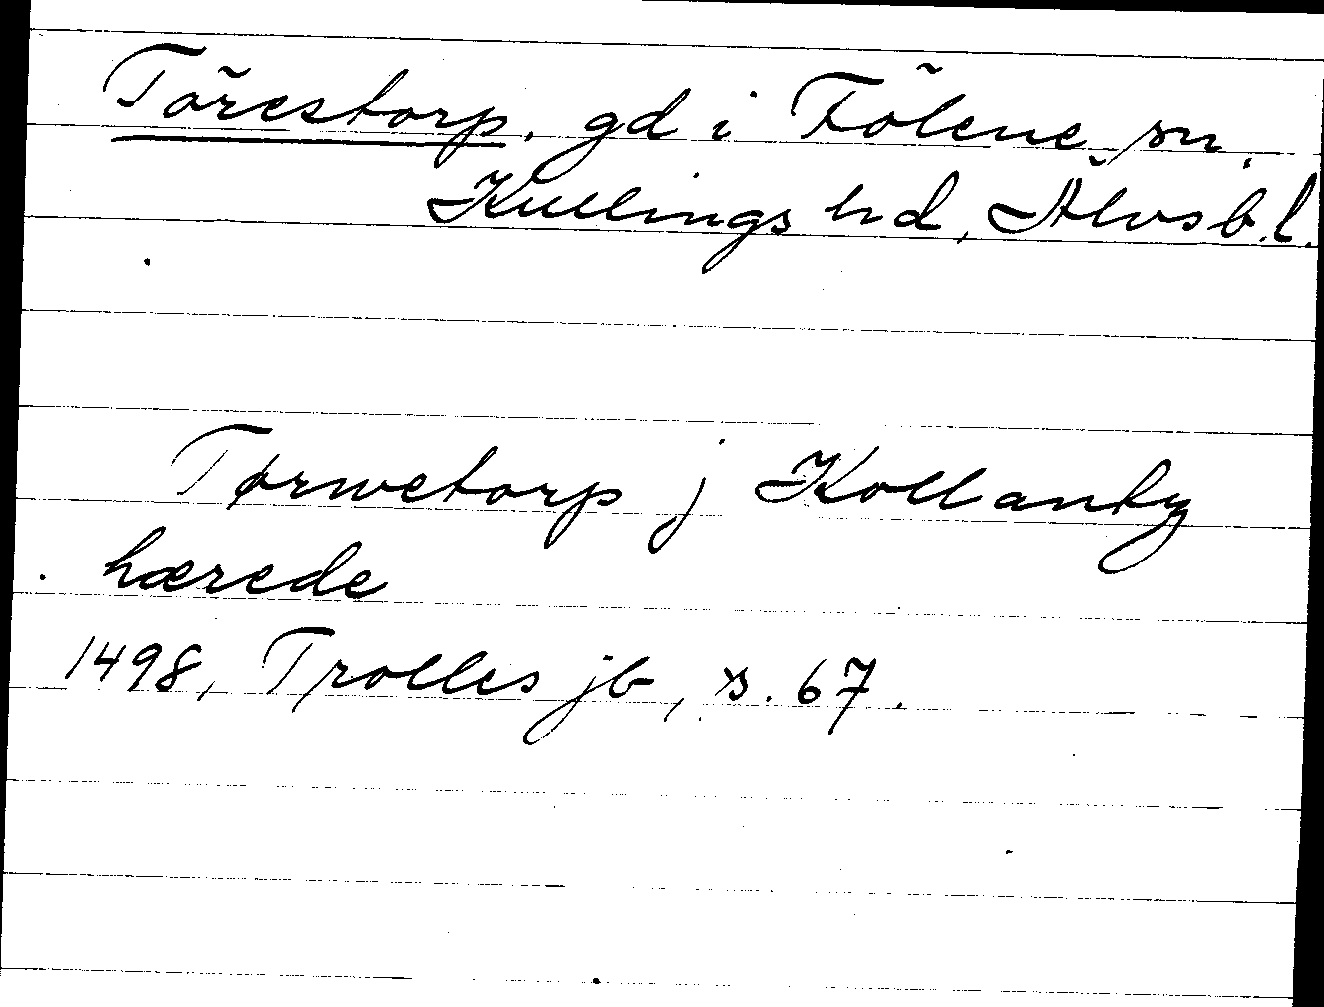 Törestorp, gd i Fölene sn,
Kullings hd, Älvsb.l.
Tørwetorp j Kollanby
hærede
1498, Trolles jb, s. 67.